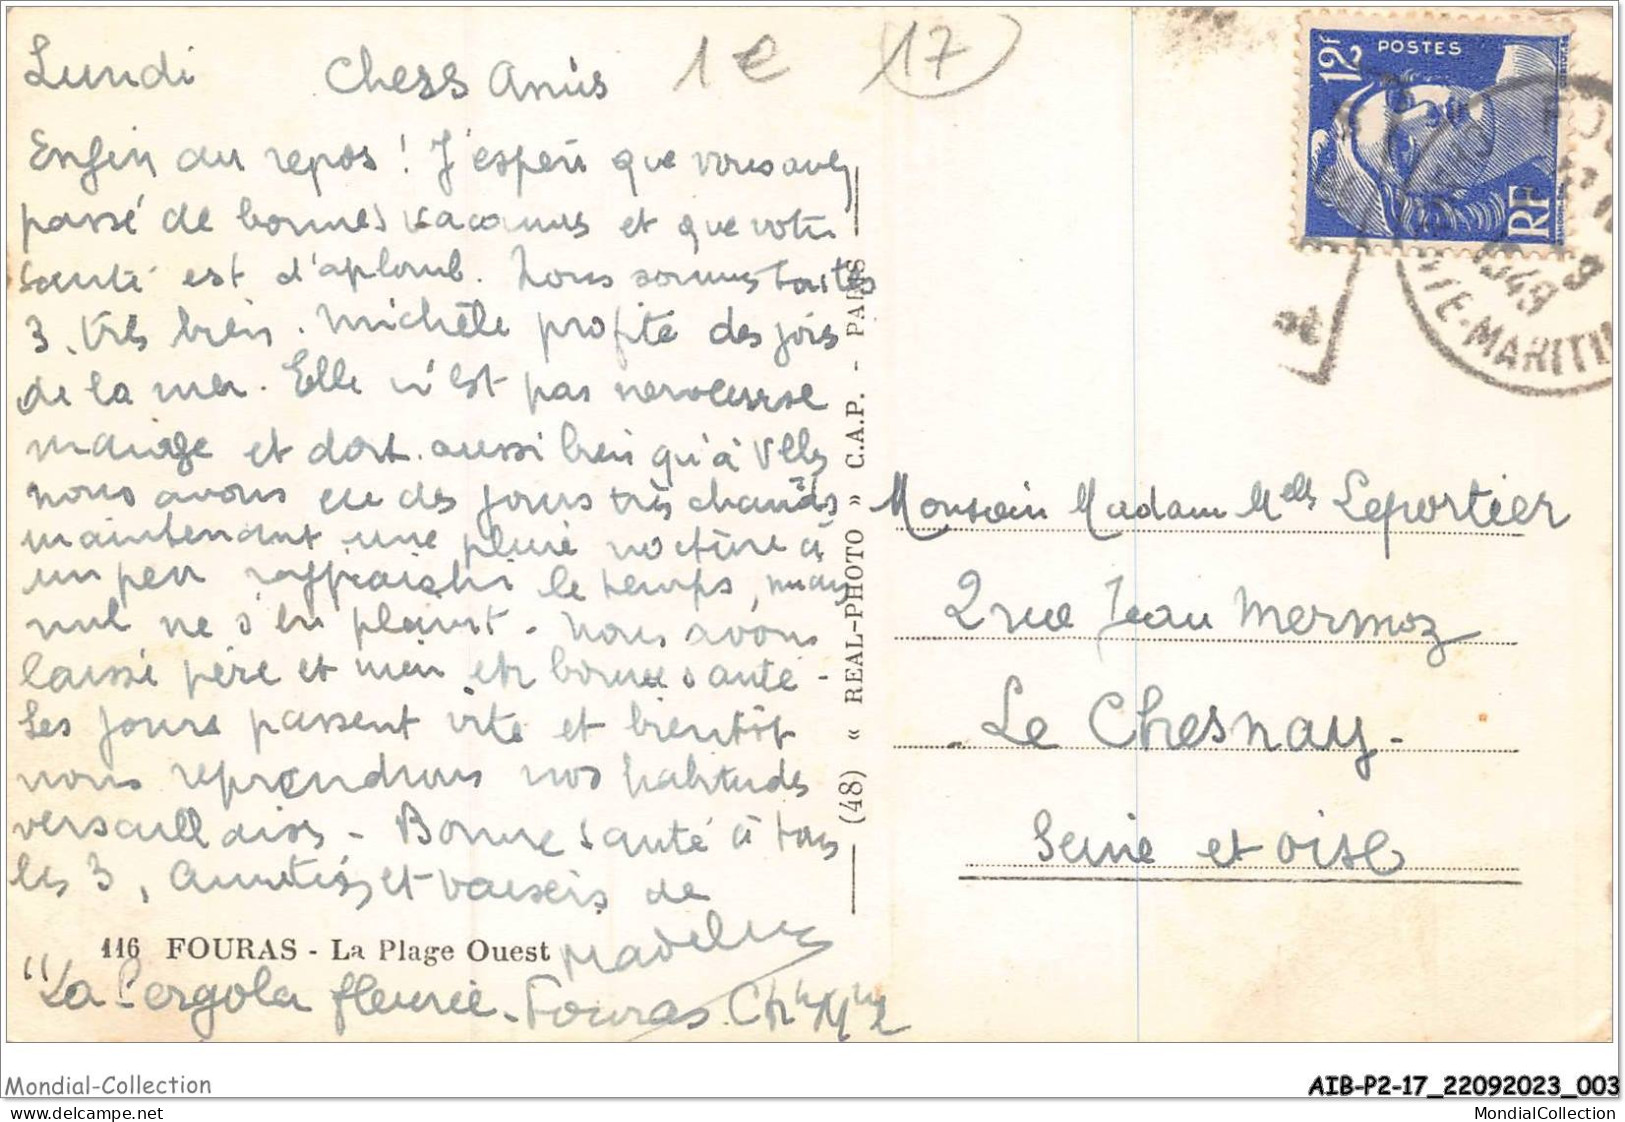 Lundi Chers Amis
1e 17
Enfin au repos ! J'espère que vous avez
passé de bonnes vacances et que votre
santé est d'aplomb. Nous sommes toutes
3, très bien. Michèle profite des joies
de la mer. Elle n'est pas nerveuse
mange et dort aussi bien qu'à Vlles
nous avons eu des jours très chauds
maintenant une pluie nocturne a
un peu raffraichi le temps, mais
nul ne s'en plaint - Nous avons
laissé père et mère en bonne santé -
Les jours passent vite et bientôt
nous reprendrons nos habitudes
versaillaises - Bonne santé à tous
les 3, Amitiés et baisers de
116 FOURAS - La Plage Ouest
"La Pergola fleurie - Fouras
(48) « REAL-PHOTO » C.A.P. - PARIS
12F POSTES
RF
1949
TE-MARITI
Monsieur Madame Melles Leportier
2 rue Jean Mermoz
Le Chesnay -
Seine et Oise
Mondial-Collection
AIB-P2-17_22092023_003
www.delcampe.net
MondialCollection